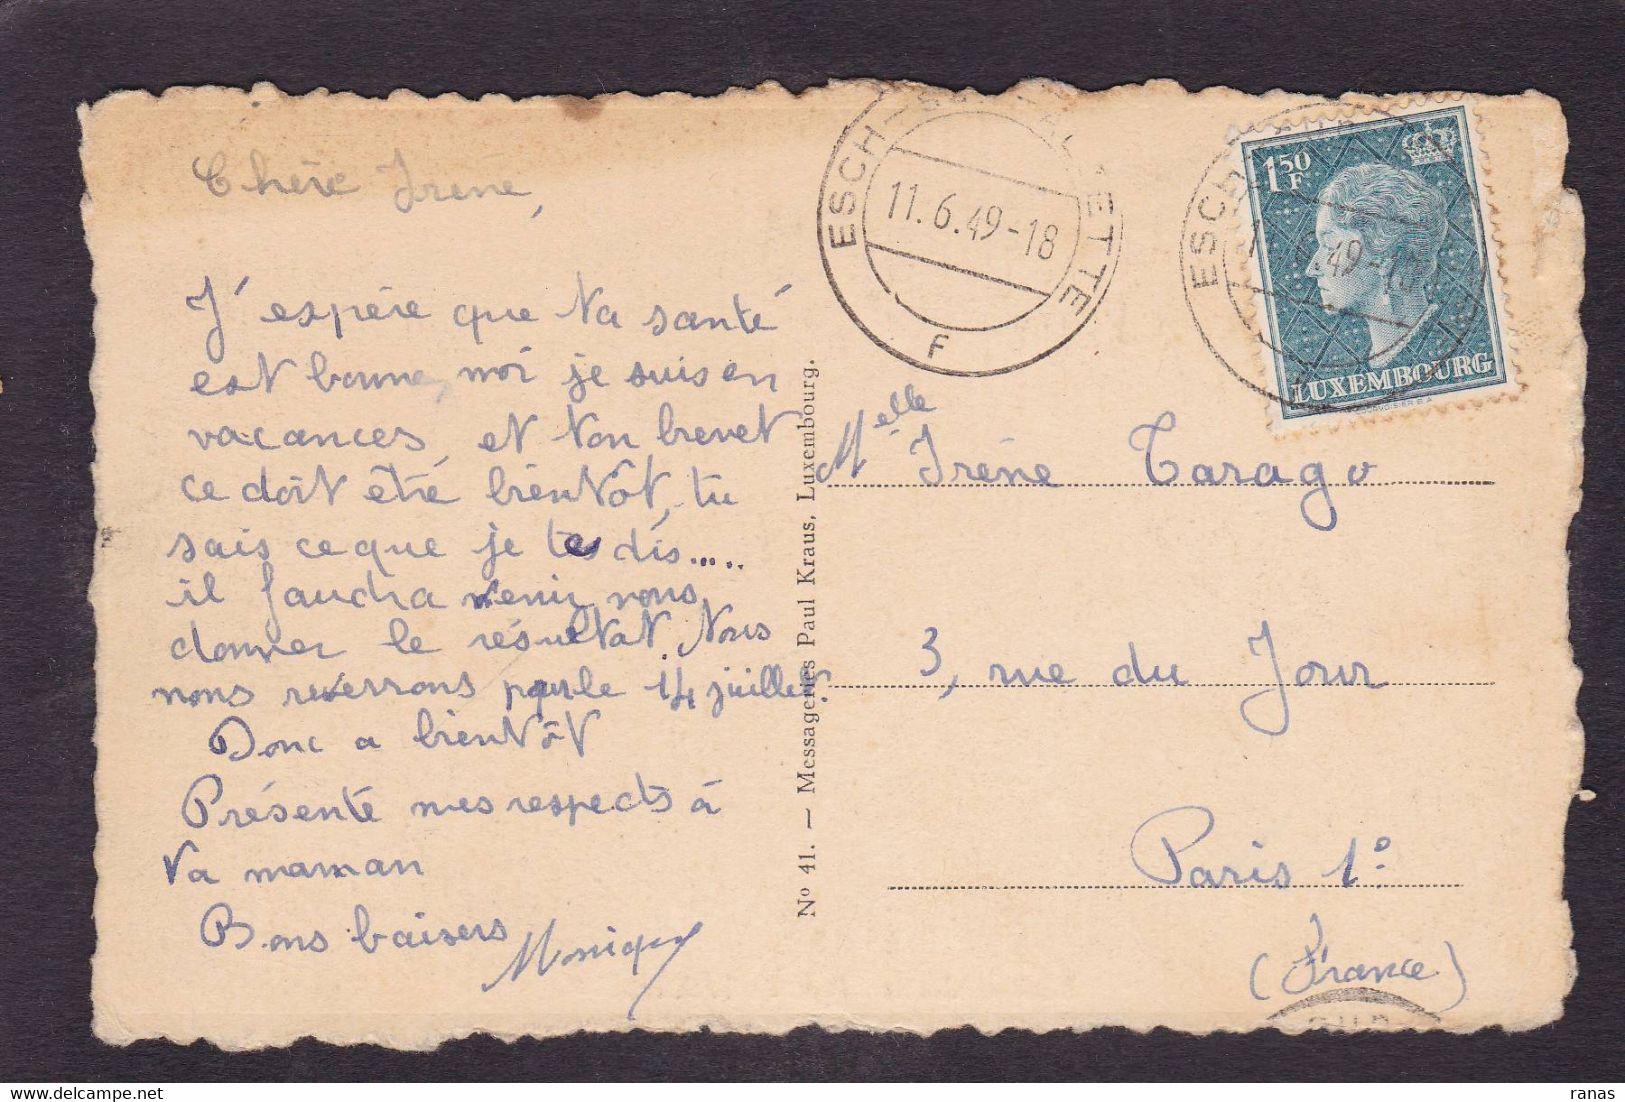 Chère Irène,
J'espère que ta santé
est bonne, moi je suis en
vacances, et ton brevet
ce doit être bientôt, tu
sais ce que je te dis.....
il faudra venir nous
donner le résultat. Nous
nous reverrons pour le 14 juillet.
Donc a bientôt
Présente mes respects à
ta maman
Bons baisers Monique
No 41. — Messageries Paul Kraus, Luxembourg.
ESCH-SUR-ALZETTE
11.6.49-18
F
1F50
LUXEMBOURG
Melle Irène Tarago
3, rue du Jour
Paris 1°
(France)
www.delcampe.net
ranas